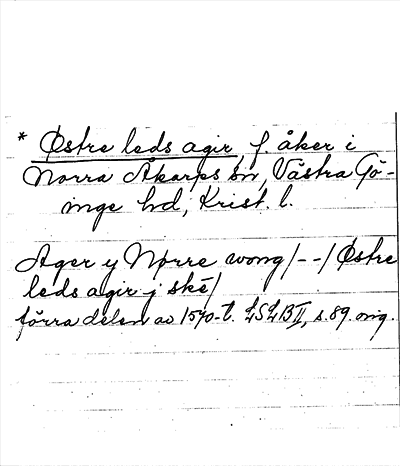 * Østre leds agir, f. åker i
Norra Åkarps sn, Västra Gö-
inge hd, Krist. l.
Ager y Nørre wong/--/Østre
leds agir j ske/
förra delen av 1570-t. LSLB II, s. 89. orig.